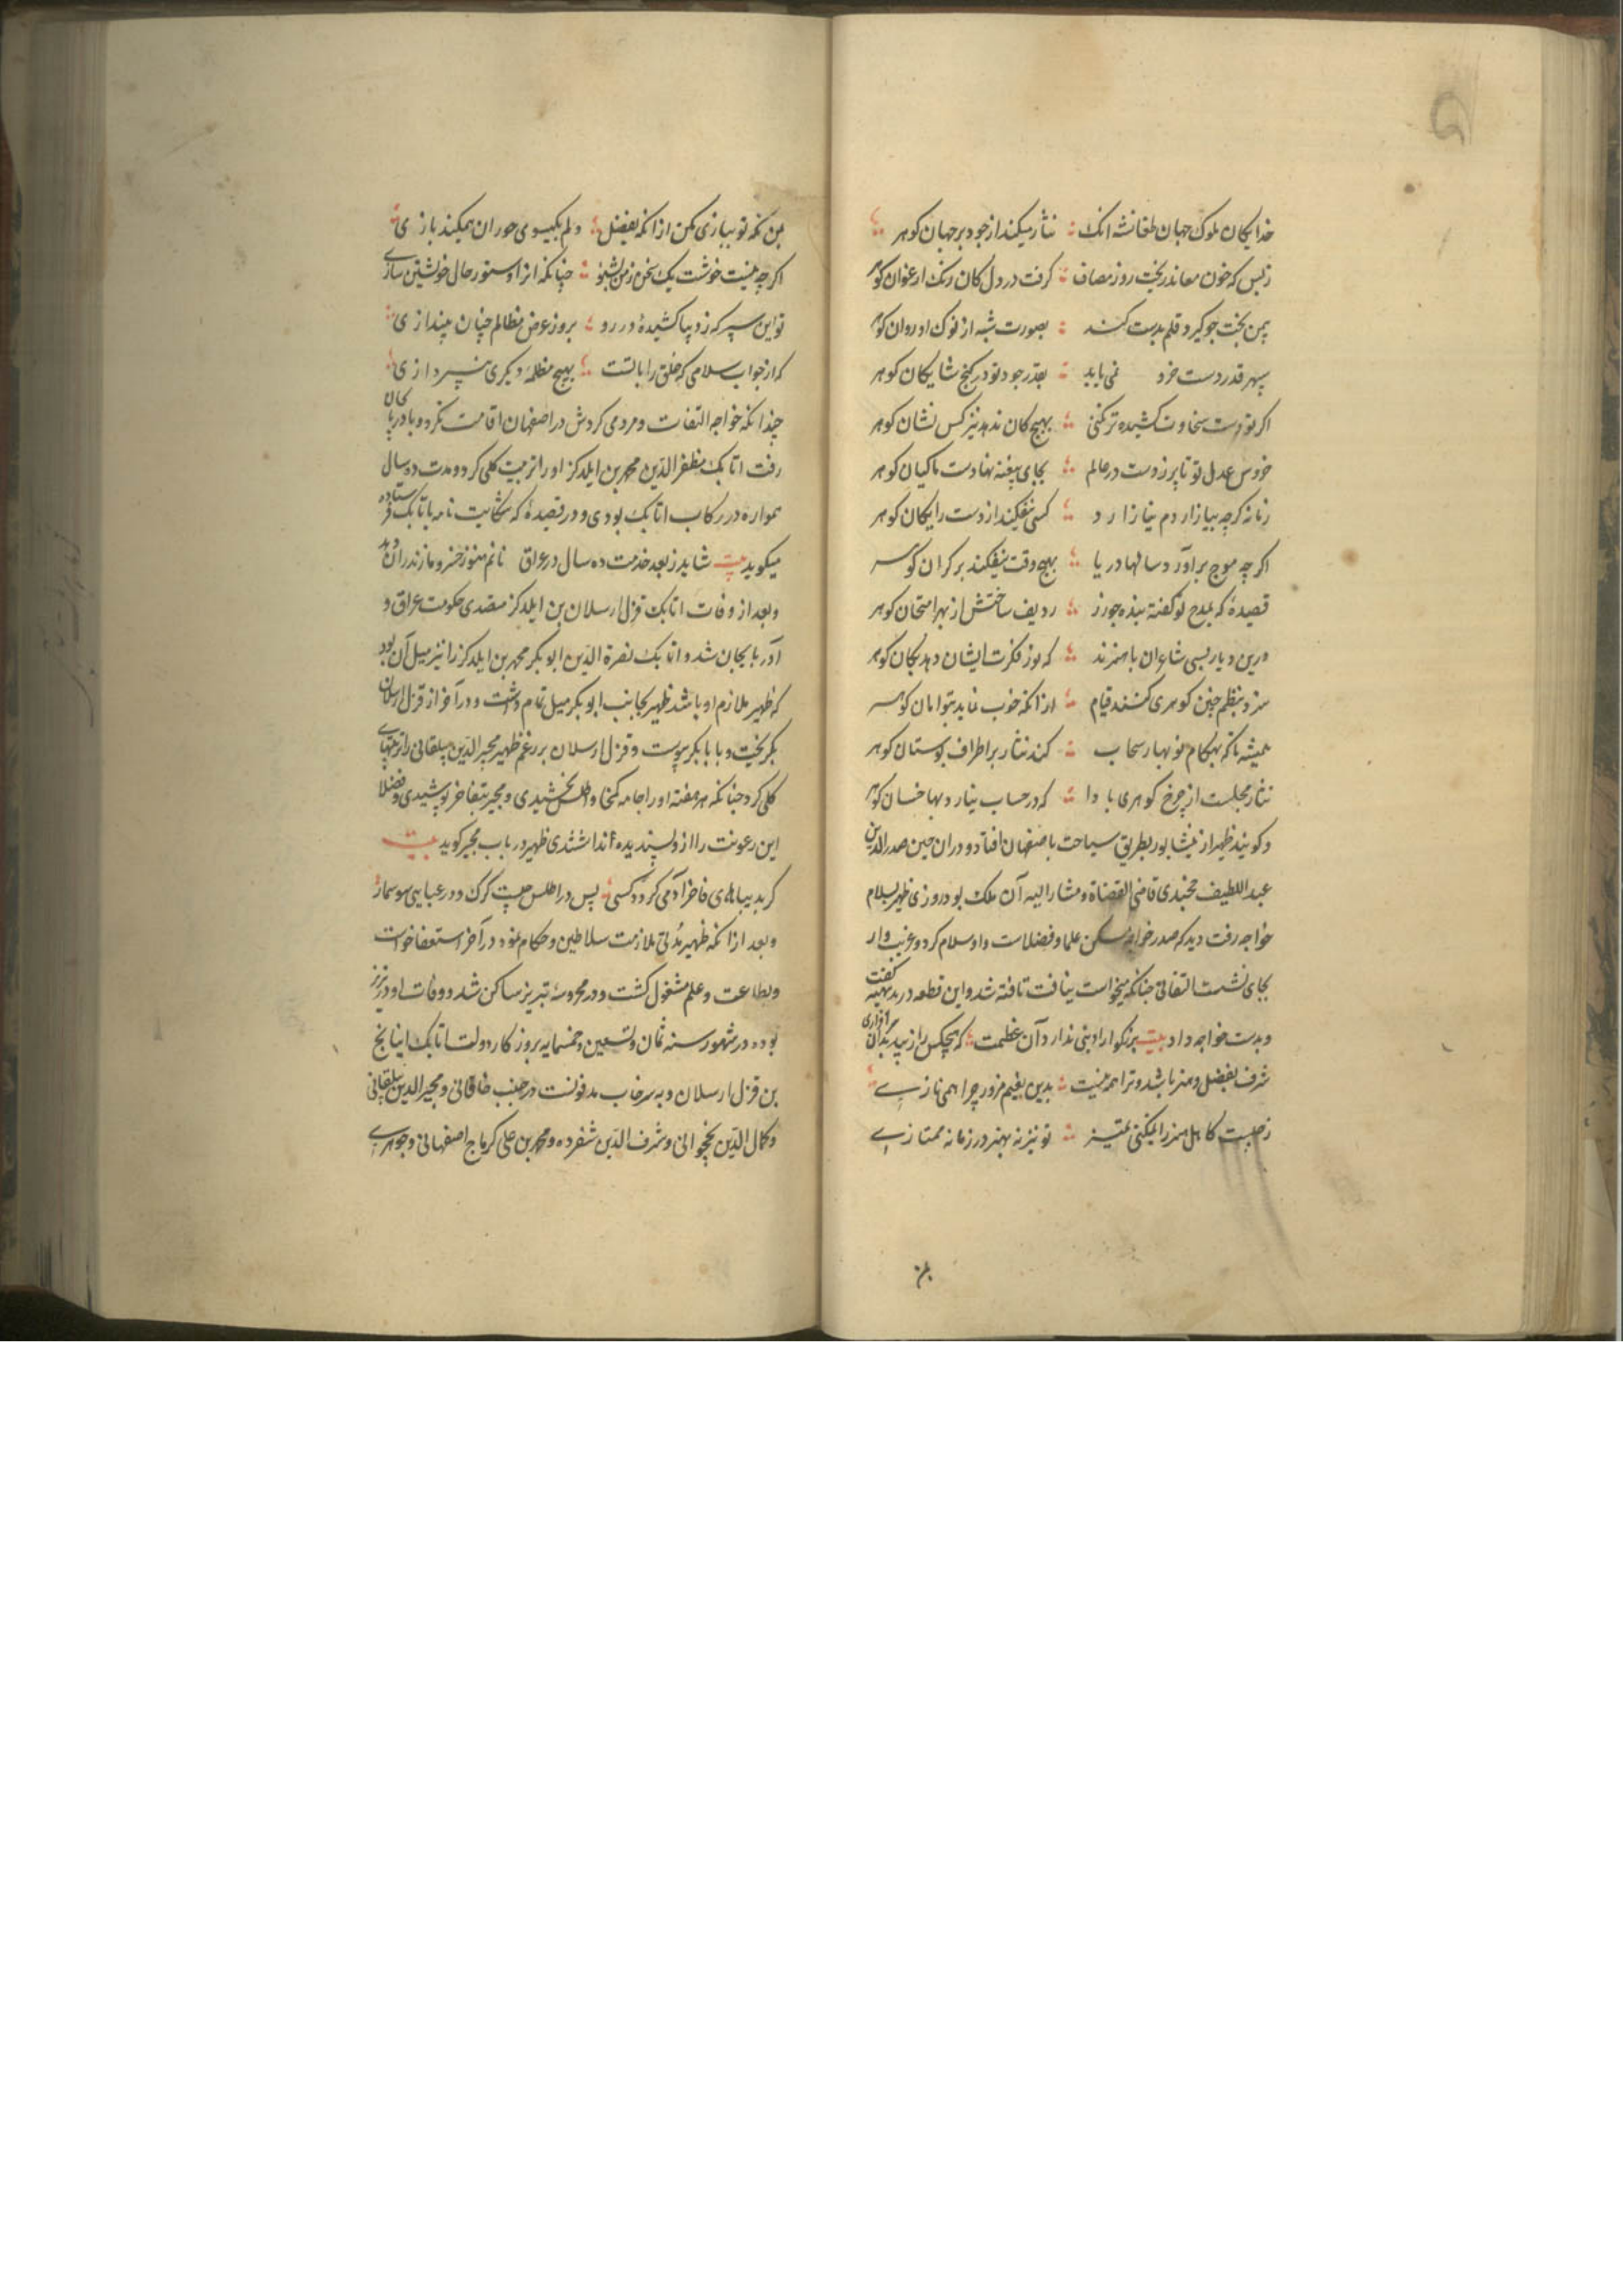 خدایکان ملوک جهان طغانشه انک نثار میکند از جود بر جهان کوهر
ز بس که خون معاند بریخت روز مصاف کرفت در دل کان رنک ارغوان کوهر
بیمن بخت جو کیرد قلم بدست کند بصورت شبه از نوک او روان کوهر
سپهر قدر دست خرد نمی یابد بقدر جود تو در کنج شایکان کوهر
اکر تو دست سخاوت کشیده تر نکنی بهیچ کان ندهد نیز کس نشان کوهر
خروس عدل تو تا پر زدست در عالم بجای بیضه نهادست ماکیان کوهر
زمانه کرچه بیازاردم نیازارد کسی نیفکند از دست رایکان کوهر
اکر چه موج برآورد سالها دریا بهیچ وقت نیفکند بر کران کوهر
قصیدهٔ که بمدح تو کفته بنده جو زر ردیف ساختش از بهر امتحان کوهر
درین دیار بسی شاعران باهنرند که نور فکرت ایشان دهد بکان کوهر
سزد بنظم جنین کوهری کنند قیام از انکه خوب نماید بتوامان کوهر
همیشه تا که بهنکام نوبهار سحاب کند نثار بر اطراف بوستان کوهر
نثار مجلست از چرخ کوهری بادا که در حساب نیارد بها خسان کوهر
و کویند ظهیر از نیشابور بطریق سیاحت باصفهان افتاد و دران حین صدر الدین
عبد اللطیف خجندی قاضی القضاة و مشار الیه آن ملک بود روزی ظهیر بسلام
خواجه رفت دید که صدر خواجه مسکن علما و فضلاست و او سلام کرد و غریب وار
بجای نشست التفاتی جنانکه میخواست نیافت تافته شد و این قطعه در بدیهه کفت
و بدست خواجه داد بیت بزرکوارا دنیی ندارد آن عظمت که هیچکس را زیبد بدان سرافرازی
شرف بفضل و هنر باشد و ترا همه نیست بدین نعیم مزور چرا همی نازی
ز چیست کاهل هنر را نمیکنی تمییز تو نیز نه بهنر در زمانه ممتازی
بمن نکه تو ببازی مکن از انکه بفضل دلم بکیسوی حوران همیکند بازی
اکر چه نیست خوشت یک سخن ز من بشنو چنانکه آنرا دستور حال خویشتن سازی
تو این سپر که ز دنیا کشیدهٔ در رو بروز عرض مظالم چنان بیندازی
که از جواب سلامی که خلق را با تست بهیچ مظلمهٔ دیکری نپردازی
چندانکه خواجه التفات و مردمی کردش در اصفهان اقامت نکرد و باذربایجان
رفت اتابک مظفر الدین محمد بن ایلدکز او را تربیت کلی کرد و مدت ده سال
همواره در رکاب اتابک بودی و در قصیدهٔ که شکایت نامه باتابک فرستاده
میکوید بیت شاید ز بعد خدمت ده سال در عراق نانم هنوز خسرو مازندران دهد
و بعد از وفات اتابک قزل ارسلان بن ایلدکز متصدی حکومت عراق و
آذربایجان شد و اتابک نصرة الدین ابوبکر محمد بن ایلدکز را نیز میل آن بود
که ظهیر ملازم او باشد ظهیر بجانب ابوبکر میل تمام داشت و در آخر از قزل ارسلان
بکریخت و با بابکر پیوست و قزل ارسلان بر رغم ظهیر مجیر الدین بیلقانی را تربیتهای
کلی کرد جنانکه هر هفته او را جامه کمخا و اطلس بخشیدی و مجیر بتفاخر پوشیدی و فضلا
این رعونت را ازو پسندیده نداشتندی ظهیر در باب مجیر کوید بیت
کر بدیباهای فاخر آدمی کردد کسی پس در اطلس چیست کرک و در عبایی سوسمار
و بعد از انکه ظهیر مدتی ملازمت سلاطین و حکام نمود در آخر استعفا خواست
و بطاعت و علم مشغول کشت و در محروسهٔ تبریز ساکن شد و وفات او در تبریز
بوده در شهور سنه ثمان و تسعین و خمسمایه بروزکار دولت اتابک اینانج
بن قزل ارسلان و به سرخاب مدفونست در جنب خاقانی و مجیر الدین بیلقانی
و کمال الدین نخجوانی و شرف الدین شفرده و محمد بن علی کرماج اصفهانی و جوهری